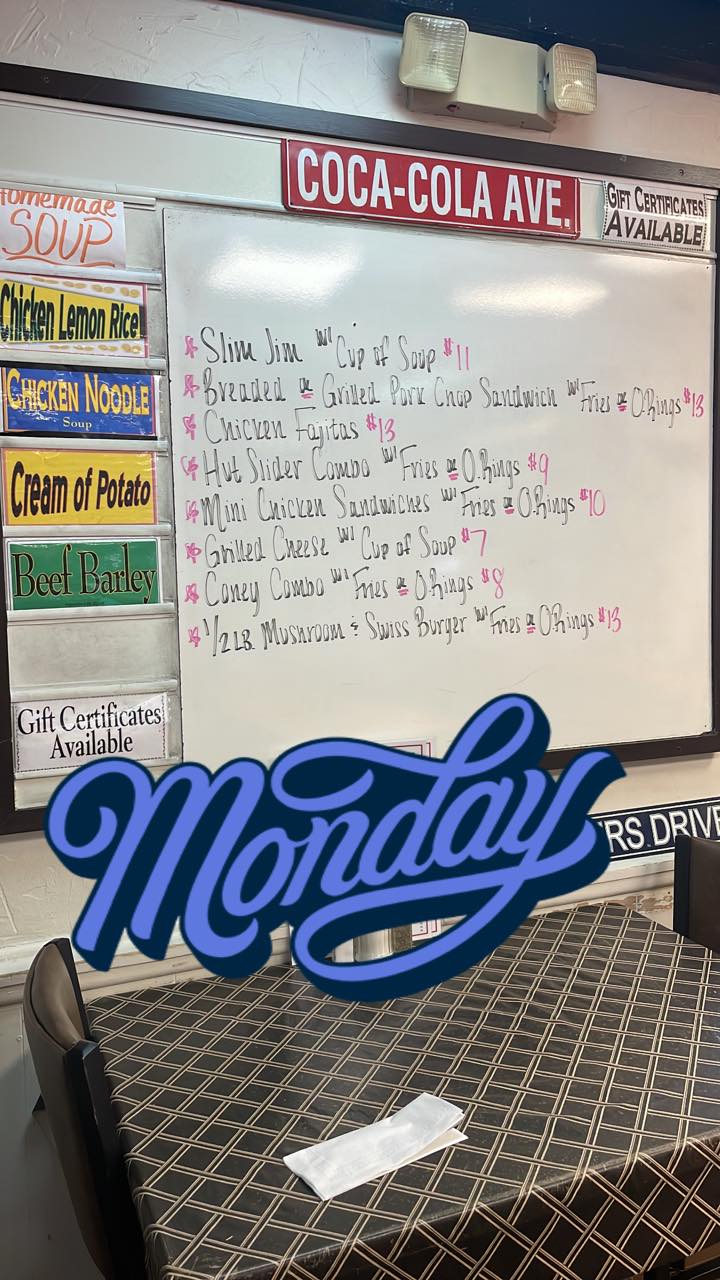 COCA-COLA AVE.
GIFT CERTIFICATES
AVAILABLE
Homemade
SOUP
Chicken Lemon Rice
CHICKEN NOODLE
Soup
Cream of Potato
Beef Barley
Gift Certificates
Available
Slim Jim w/ Cup of Soup $11
Breaded or Grilled Pork Chop Sandwich w/ Fries or O.Rings $13
Chicken Fajitas $13
Hut Slider Combo w/ Fries or O.Rings $9
Mini Chicken Sandwiches w/ Fries or O.Rings $10
Grilled Cheese w/ Cup of Soup $7
Coney Combo w/ Fries or O.Rings $8
1/2 LB. Mushroom & Swiss Burger w/ Fries or O.Rings $13
Monday
RS DRIVE